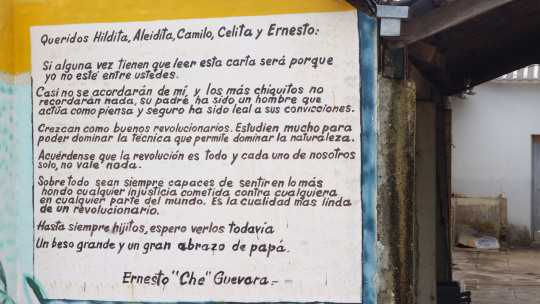 Queridos Hildita, Aleidita, Camilo, Celita y Ernesto:
Si alguna vez tienen que leer esta carta será porque
yo no esté entre ustedes.
Casi no se acordarán de mí, y los más chiquitos no
recordarán nada, su padre ha sido un hombre que
actúa como piensa y seguro ha sido leal a sus convicciones.
Crezcan como buenos revolucionarios. Estudien mucho para
poder dominar la técnica que permite dominar la naturaleza.
Acuérdense que la revolución es todo y cada uno de nosotros
solo, no vale nada.
Sobre todo sean siempre capaces de sentir en lo más
hondo cualquier injusticia cometida contra cualquiera
en cualquier parte del mundo. Es la cualidad más linda
de un revolucionario.
Hasta siempre hijitos, espero verlos todavía
Un beso grande y un gran abrazo de papá.
Ernesto "Che" Guevara.-